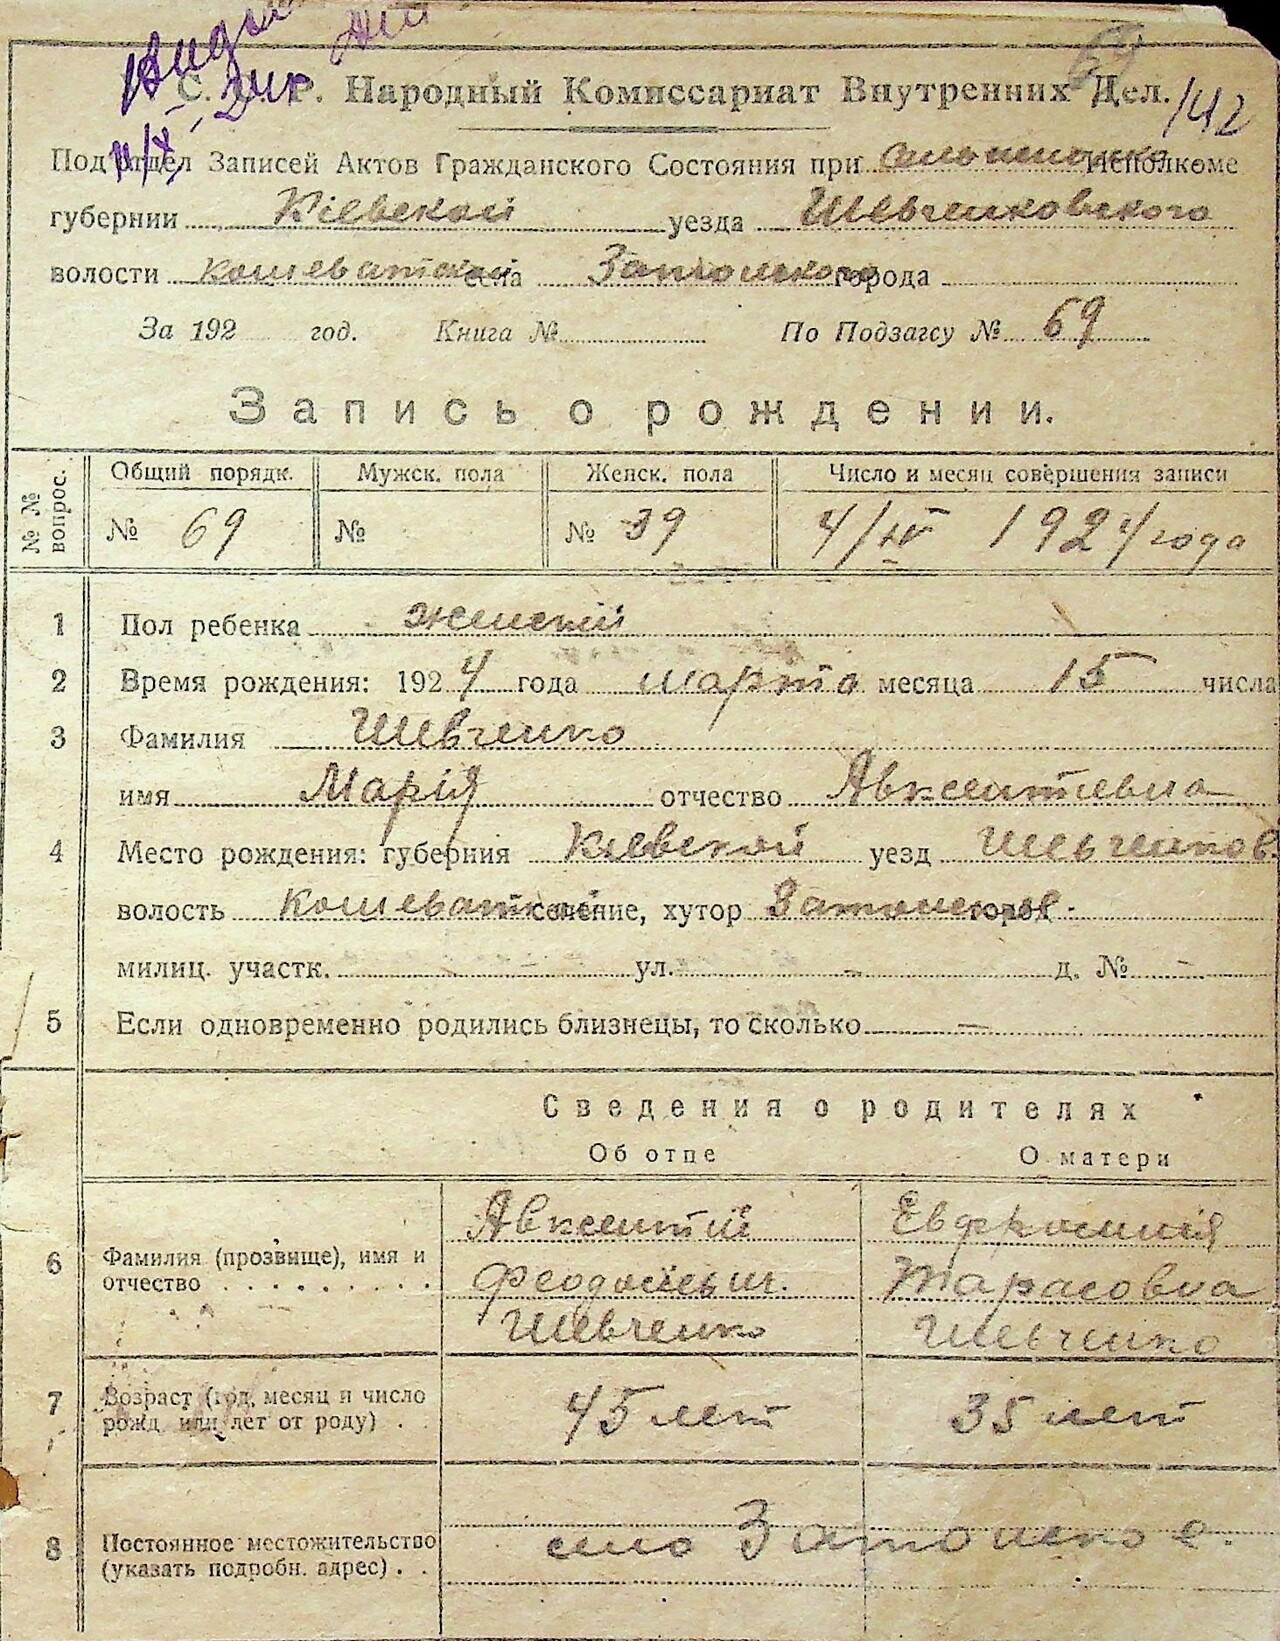 С. С. Р. Народный Комиссариат Внутренних Дел. /42
Под'отдел Записей Актов Гражданского Состояния при Исполкоме
губернии Кіевской уезда Шевченковского
волости Кошеватской села города
За 192 год. Книга № По Подзагсу № 69
Запись о рождении.
№ № вопрос. Общий порядк. Мужск. пола Женск. пола Число и месяц совершения записи
№ 69 № № 39 4/IV 1924 года
1 Пол ребенка женский
2 Время рождения: 1924 года марта месяца 15 числа
3 Фамилия Шевченко
имя Марія отчество Авксентіевна
4 Место рождения: губерния Кіевской уезд Шевченков.
волость Кошеватской селение, хутор город -
милиц. участк. ул. — д. № —
5 Если одновременно родились близнецы, то сколько —
Сведения о родителях
Об отце О матери
Авксентий Евфросинія
6 Фамилия (прозвище), имя и отчество . . . . . . . . Феодосіевич. Тарасовна
Шевченко Шевченко
7 Возраст (год, месяц и число рожд. или лет от роду) . 45 лет 35 лет
8 Постоянное местожительство (указать подробн. адрес) . . село